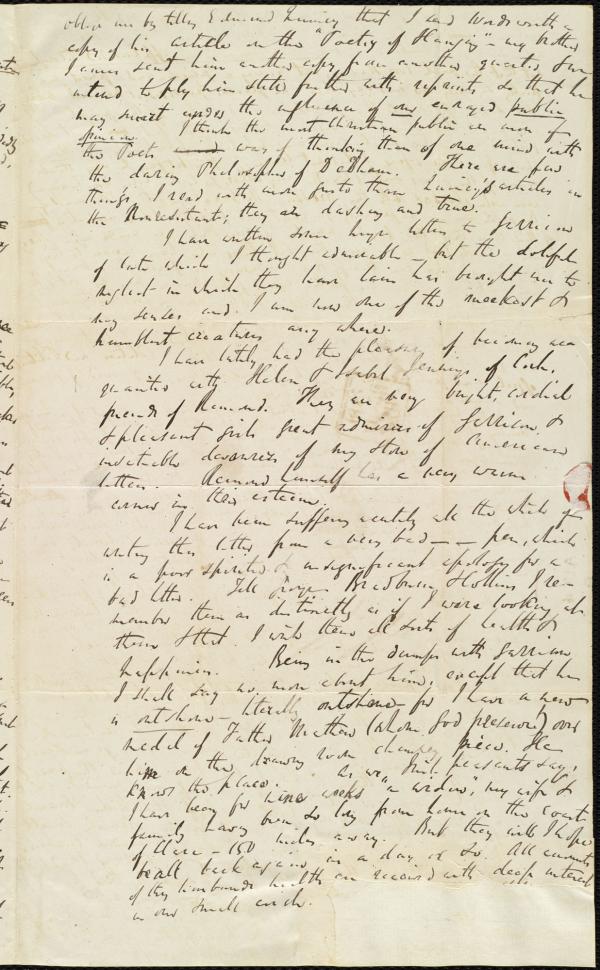 oblige me by telling Edmund Quincy that I send Wordsworth a
copy of his article on the "Poetry of Hanging" - my brother
James sent him another copy from another quarter & we
intend to ply him still further with reprints, so that he
may smart under the influence of our enraged public
opinion. I think the most Christian public are more of
the Poets way of thinking than of one mind with
the daring Philosopher of Dedham. There are few
things I read with more gusto than Quincy's articles in
the Nonresistant; they are dashing and true.
I have written some huge letters to Garrison
of late which I thought admirable - but the doleful
neglect in which they have lain has brought me to
my senses and I am now one of the meekest &
humblest creatures any where.
I have lately had the pleasure of becoming ac
quainted with Helen & Isabel Jennings of Cork,
friends of Remond. They are very bright, cordial
& pleasant girls great admirers of Garrison, &
insatiable devourers of my store of American
letters. Remond himself has a very warm
corner in their esteem.
I have been suffering acutely all the while of
writing this letter from a very bad - - pen, which
is a poor spirited & insignificant apology for a
bad letter. Tell Rogers Bradburn & Collins I re-
member them as distinctly as if I were looking at
them & that I wish them all sorts of health &
happiness. Being in the dumps with Garrison
I shall say no more about him, except that he
is outshone - literally outshone - for I have a new
medal of Father Mathew (whom God preserve) over
him on the drawing room chimney piece. He
knows the place. As our Irish peasants say,
I have been for nine weeks "a widow," my wife &
family having been so long from home on the coast
of Clare - 150 miles away. But they will I hope
be all back again in a day or so. All accounts
of thy husbands health are received with deep interest
in our small circle.